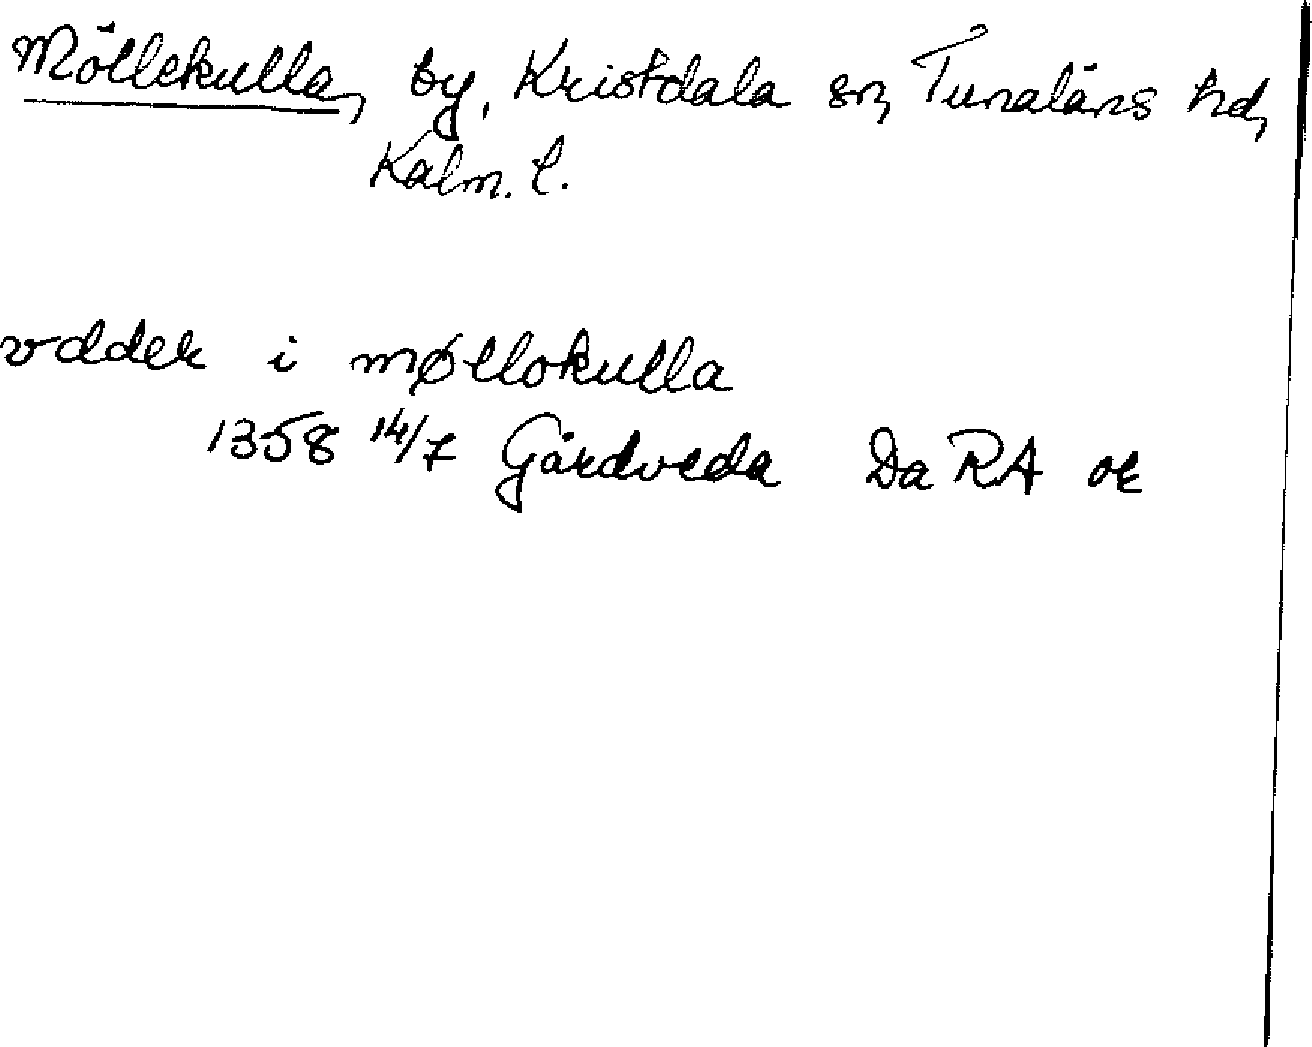 Möllekulla, by, Kristdala sn, Tunaläns hd,
Kalm. l.
oddek i møllokulla
1358 14/7 Gårdveda Da RA or